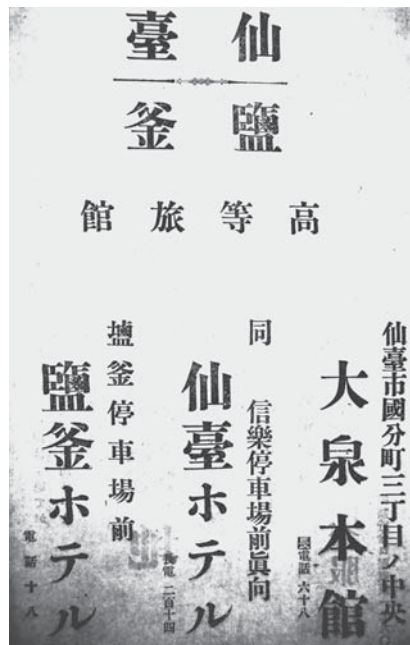 仙臺
鹽釜
高等旅館
仙臺市國分町三丁目ノ中央
大泉本館
電話 六十八
同 信樂停車場前眞向
仙臺ホテル
長電 二百十四
塩釜停車場前
鹽釜ホテル
電話十八